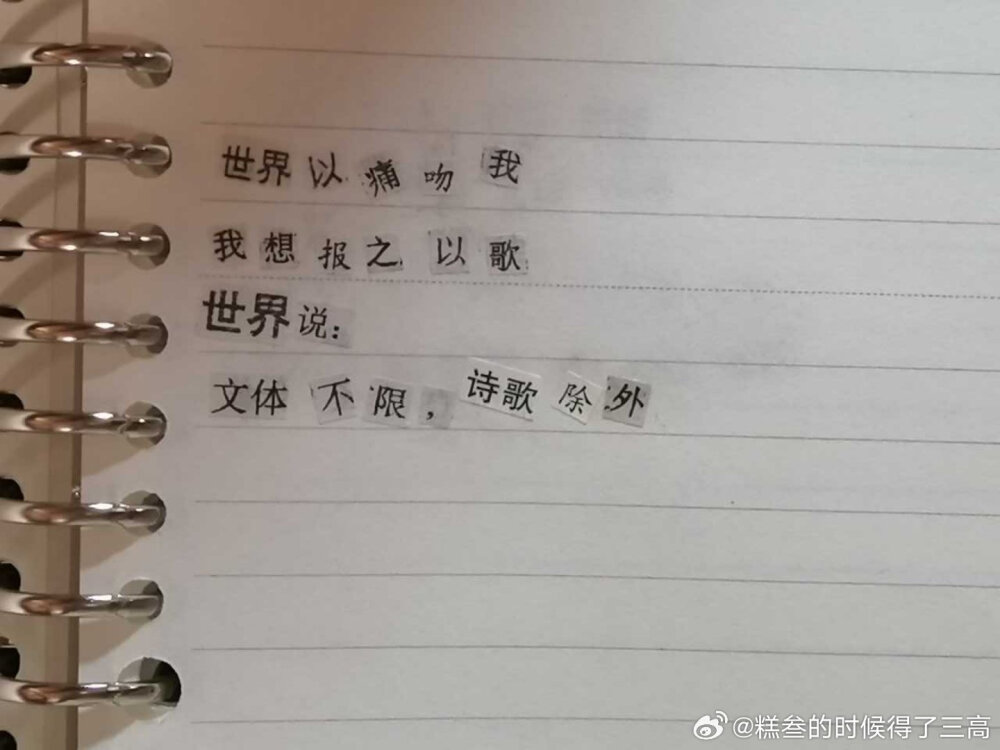 世界以痛吻我
我想报之以歌
世界说：
文体不限，诗歌除外
@糕叁的时候得了三高